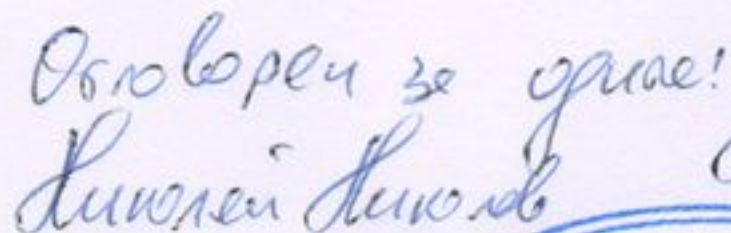 Отговорен за
Николай Николов